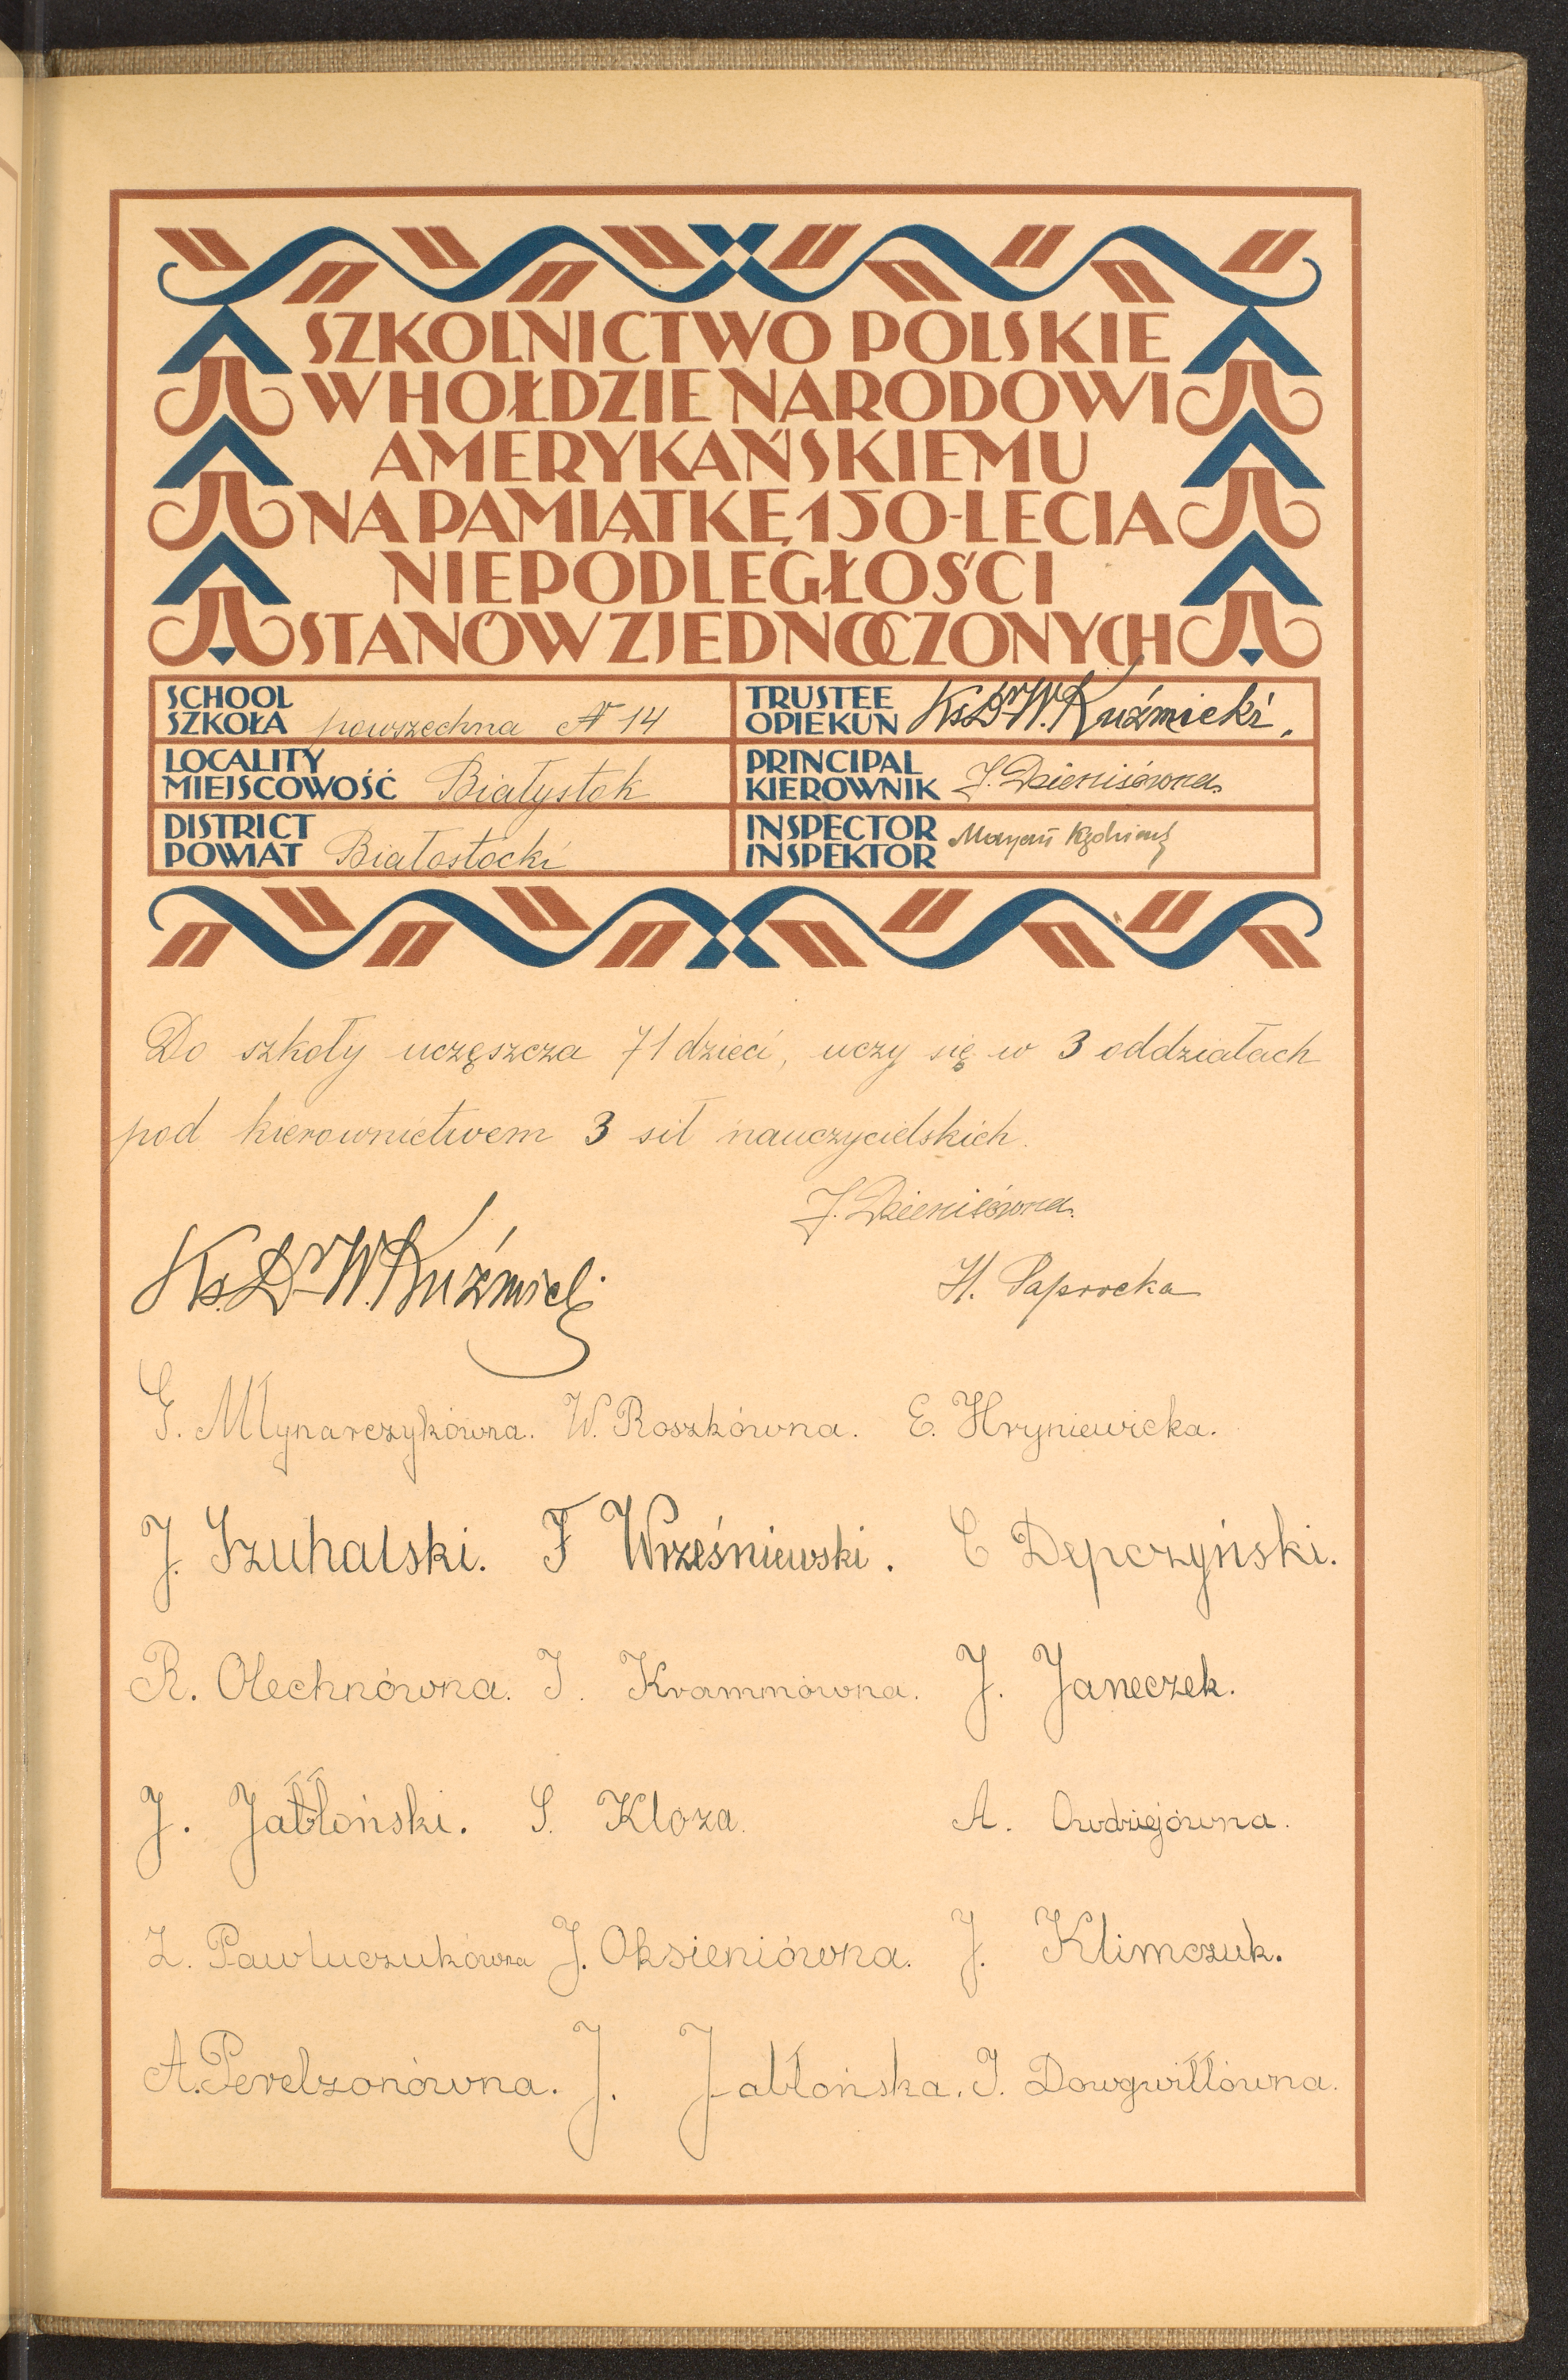 SZKOLNICTWO POLSKIE
W HOŁDZIE NARODOWI
AMERYKAŃSKIEMU
NA PAMIĄTKĘ 150-LECIA
NIEPODLEGŁOŚCI
STANÓW ZJEDNOCZONYCH
SCHOOL
SZKOŁA powszechna N 14
TRUSTEE
OPIEKUN Ks. Dr W. Kuźmicki.
LOCALITY
MIEJSCOWOŚĆ Białystok
PRINCIPAL
KIEROWNIK J. Dzienisówna
DISTRICT
POWIAT Białostocki
INSPECTOR
INSPEKTOR Maryan
Do szkoły uczęszcza 71 dzieci, uczy się w 3 oddziałach
pod kierownictwem 3 sił nauczycielskich.
J. Dzienisówna.
Ks. Dr W. Kuźmicki
H. Paprocka
G. Młynarczykówna. W. Roszkówna. E. Hryniewicka.
J. Szuhalski. F Wrześniewski. C Depczyński.
R. Olechnówna. J. Krammówna. J. Janeczek.
J. Jabłoński. S. Kloza. A. Owdziejówna.
Z. Pawluczukówna J. Oksieniówna. J. Klimczuk.
A. Perelzonówna. J. Jabłońska. J. Dowgwiłłówna.